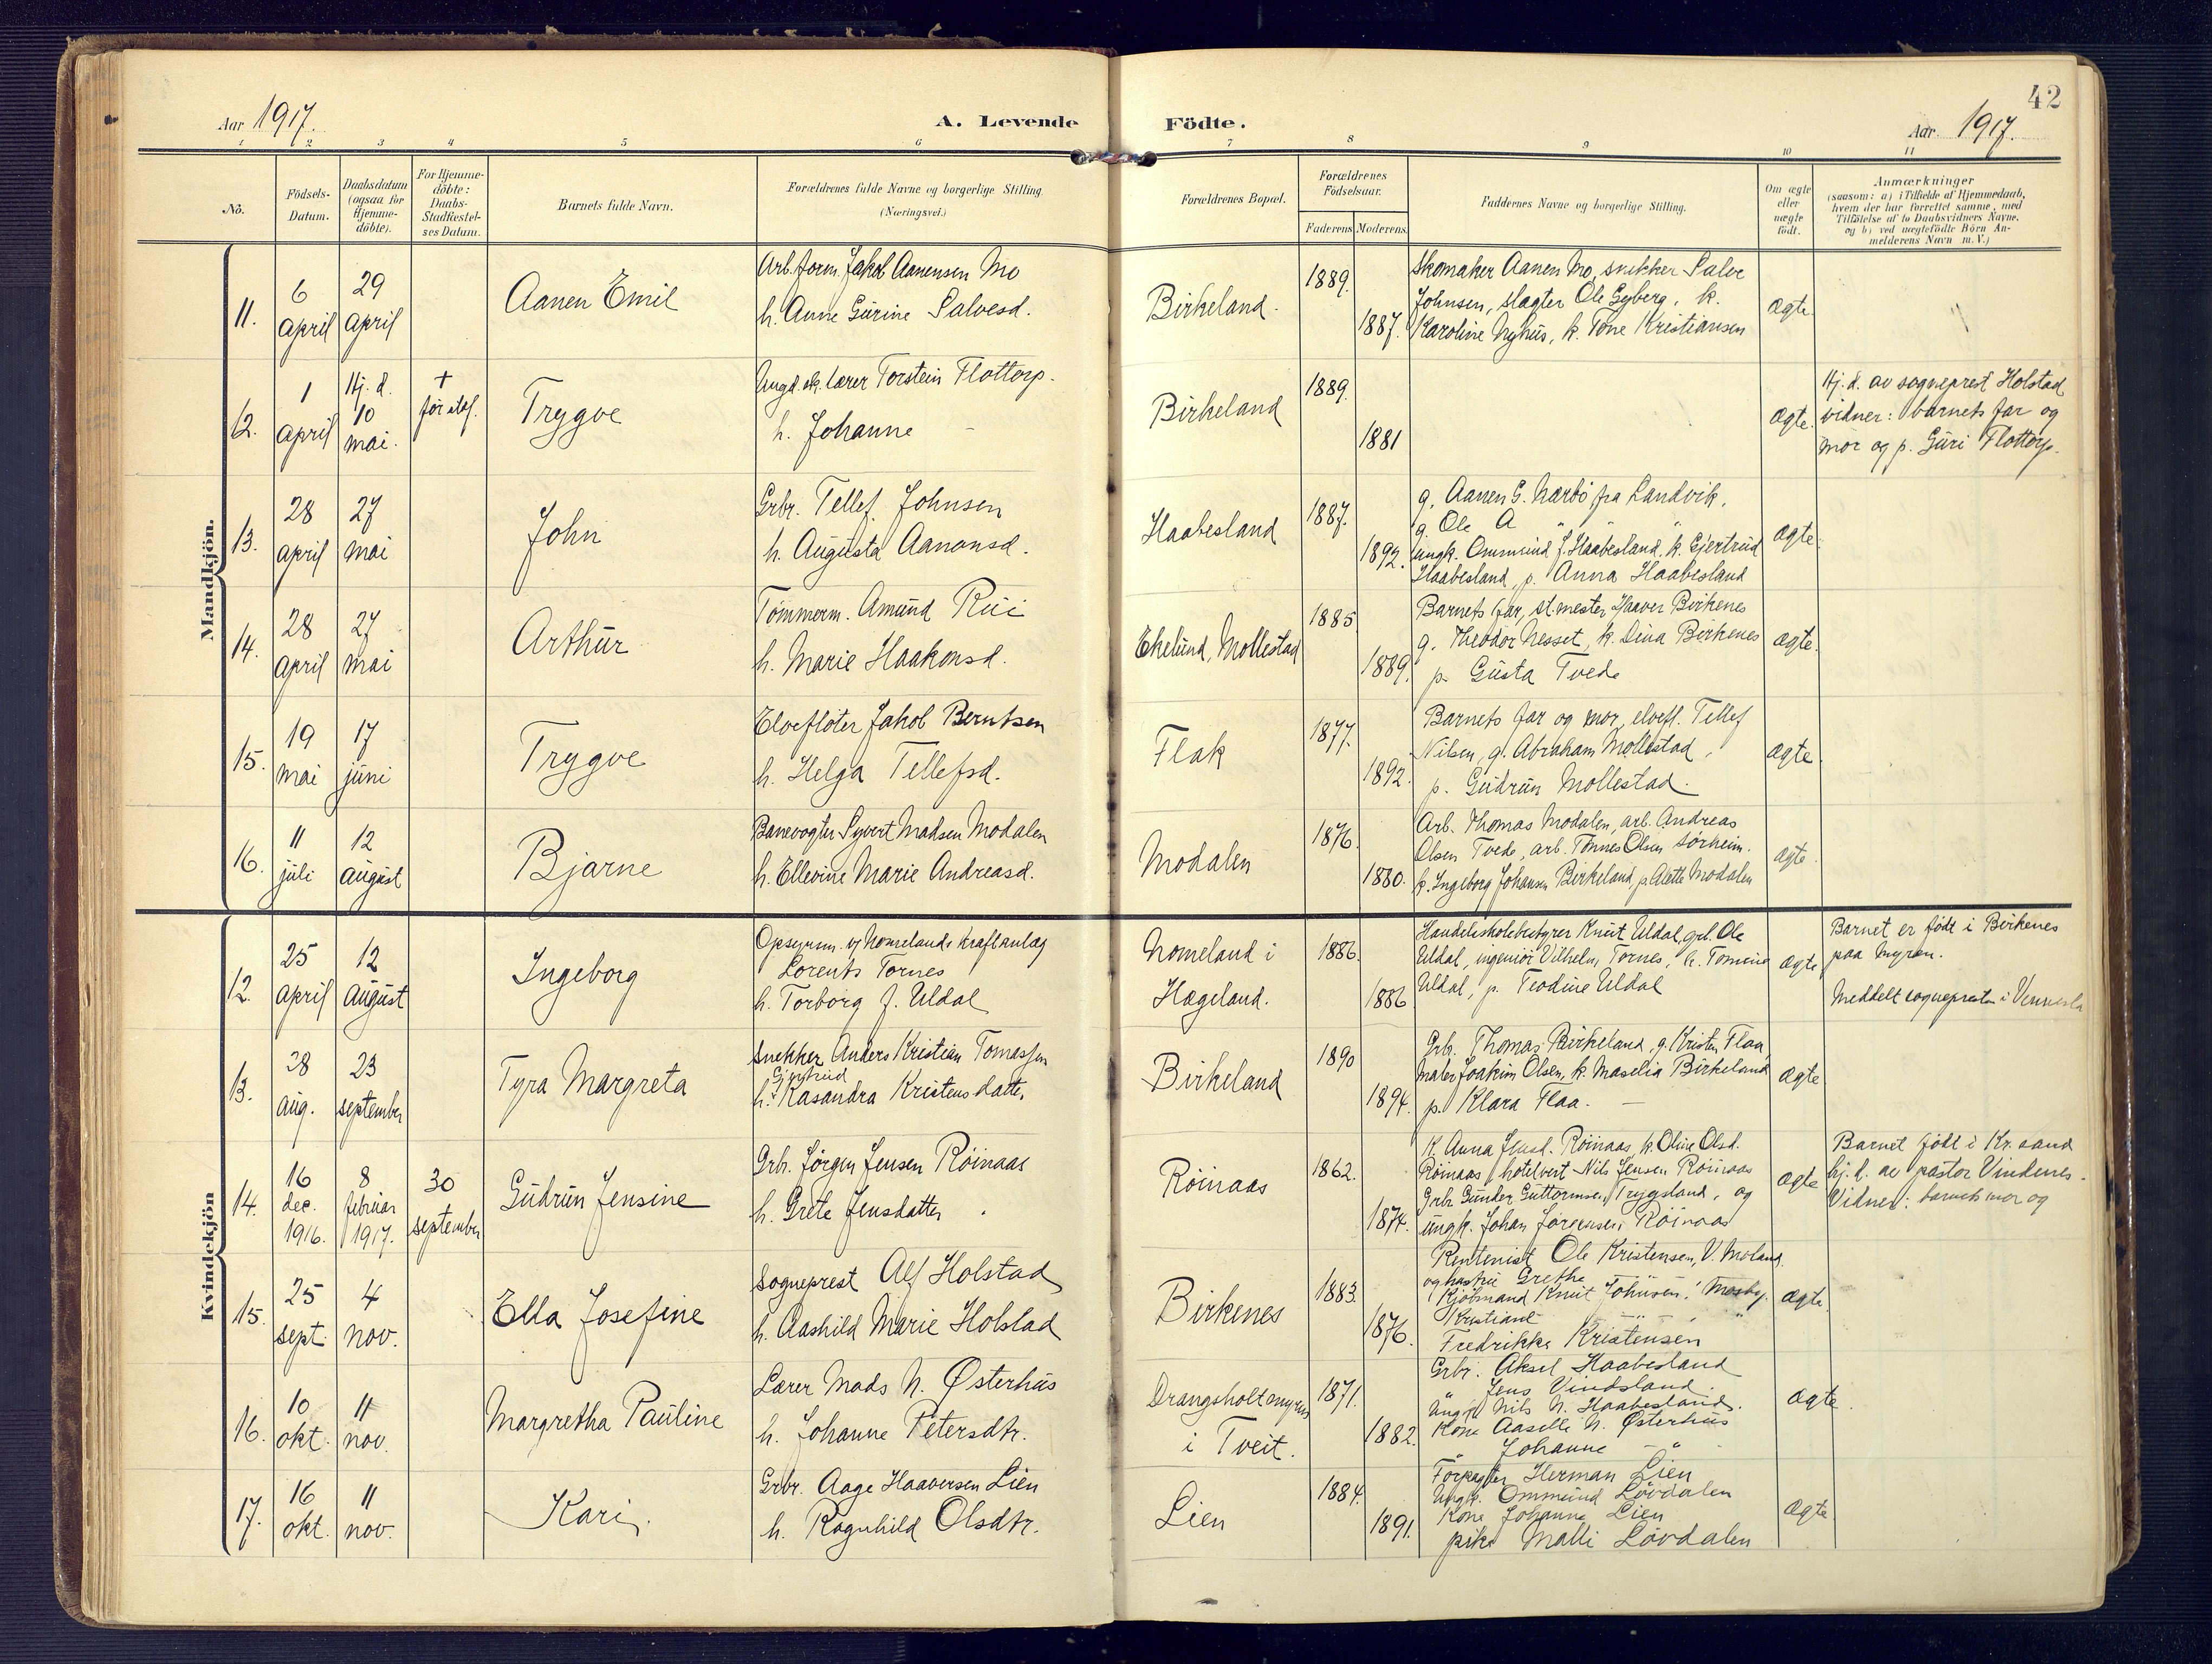 42
Aar 1917.
A. Levende Födte.
Aar 1917.
1 2 3 4 5 6 7 8 9 10 11
No.
Födsels-
Datum.
Daabsdatum
(ogsaa for
Hjemme-
döbte).
For Hjemme-
döbte:
Daabs-
Stadfæstel-
ses Datum.
Barnets fulde Navn.
Forældrenes fulde Navne og borgerlige Stilling.
(Næringsvei.)
Forældrenes Bopæl.
Forældrenes
Födselsaar.
Faderens Moderens.
Faddernes Navne og borgerlige Stilling.
Om ægte
eller
uægte
födt.
Anmærkninger
(saasom: a) i Tilfælde af Hjemmedaab,
hvem der har forrettet samme, med
Tilföielse af to Daabsvidners Navne,
og b) ved uægtefödte Börn An-
melderens Navn m. V.)
Mandkjön.
11.
6
april
29
april
Aanen Emil
Arb.form. Jakob Aanensen Mo
h. Anne Gurine Salvesd.
Birkeland.
1889.
1887.
Skomaker Aanen Mo, snikker Salve
Johnsen, slagter Ole Gyberg, k.
Karoline Nyhus, k. Tone Kristiansen
ægte
12.
1
april
Hj. d.
10
mai.
+
før staf.
Trygve
Ungd.sk. lærer Torstein Flottorp.
h. Johanne -
Birkeland
1889.
1881
ægte.
Hj. d. av sogneprest Holstad
vidner: barnets far og
mor og p. Guri Flottorp.
13.
28
april
27
mai
John
Grbr. Tellef Johnsen
h. Augusta Aanonsd.
Haabesland
1887.
1892.
g. Aanen G. Nærbø fra Landvik,
g. Ole A " "
ungk. Ommund J. Haabesland, k. Gjertrud
Haabesland, p. Anna Haabesland
ægte.
14.
28
april
27
mai
Arthur
Tømmerm. Amund Rui
h. Marie Haakonsd.
Ekelund, Mollestad
1885.
1889.
Barnets far, st.mester Haaver Birkenes
g. Theodor Nesset, k. Dina Birkenes
p. Gusta Tvede
ægte.
15.
19
mai
17
juni
Trygve
Elvefløter Jakob Berntsen
h. Helga Tellefsd.
Flak
1877.
1892.
Barnets far og mor, elvefl. Tellef
Nilsen, g. Abraham Mollestad,
p. Gudrun Mollestad.
ægte.
16.
11
juli
12
august
Bjarne
Banevogter Syvert Madsen Modalen
h. Ellevine Marie Andreasd.
Modalen
1876.
1880.
Arb. Thomas Modalen, arb. Andreas
Olsen Tvede, arb. Tønnes Olsen Sørheim.
k. Ingeborg Johansen Birkeland, p. Alette Modalen
ægte.
Kvindekjön
12.
25
april
12
august
Ingeborg
Opsynsm. v/ Nomelands kraftanlæg
Lorents Tornes
h. Torborg f. Uldal
Nomeland i
Hægeland.
1886.
1886
Handelsskolebestyrer Knut Uldal, grb. Ole
Uldal, ingeniør Vilhelm Tornes, k. Tomine
Uldal, p. Teodine Uldal
ægte
Barnet er født i Birkenes
paa Myran.
Meddelt sognepresten i Vennesla
13.
28
aug.
23
september
Tyra Margreta
Snekker Anders Kristian Tomassen
Gjertrud
h. Kasandra Kristensdatter
Birkeland
1890
1894.
Grb. Thomas Birkeland, g. Kristen Flaa,
maler Joakim Olsen, k. Maselia Birkeland
p. Klara Flaa. -
ægte
14.
16
dec.
1916.
8
februar
1917.
30
september
Gudrun Jensine
Grb. Jørgen Jensen Røinaas
h. Grete Jensdatter
Røinaas
1862.
1874.
K. Anna Jensd. Røinaas, k. Oline Olsd.
Røinaas, hotelvert Nils Jensen Røinaas
Grbr Gunder Guttormsen, Trygsland, og
ungk. Johan Jørgensen Røinaas
ægte
Barnet født i Kr.sand
hj.d. av pastor Vindenes.
Vidner: barnets mor og
15.
25
sept.
4
nov.
Ella Josefine
Sogneprest Alf Holstad
h. Aashild Marie Holstad
Birkenes
1883.
1876.
Rentenist Ole Kristensen, V. Moland.
og hustru Grethe
Kjøbmand Knut Johnsen, Mosby.
Kristiane " "
Fredrikke Kristensen
ægte.
16.
10
okt.
11
nov.
Margretha Pauline
Lærer Mads N. Østerhus
h. Johanne Petersdtr.
Drangsholtmyren
i Tveit.
1871.
1882.
Grbr. Aksel Haabesland
Jens Vindsland.
Ungk Nils N. Haabesland.
Kone Aaselle N. Østerhus
Johanne - " -
ægte.
17.
16
okt.
11
nov.
Kari.
Grbr. Aage Haaversen Lien
h. Ragnhild Olsdtr.
Lien
1884.
1891.
Forpagter Herman Lien
Ungk. Ommund Løvdalen
Kone Johanne Lien
pike Malli Løvdalen
ægte.